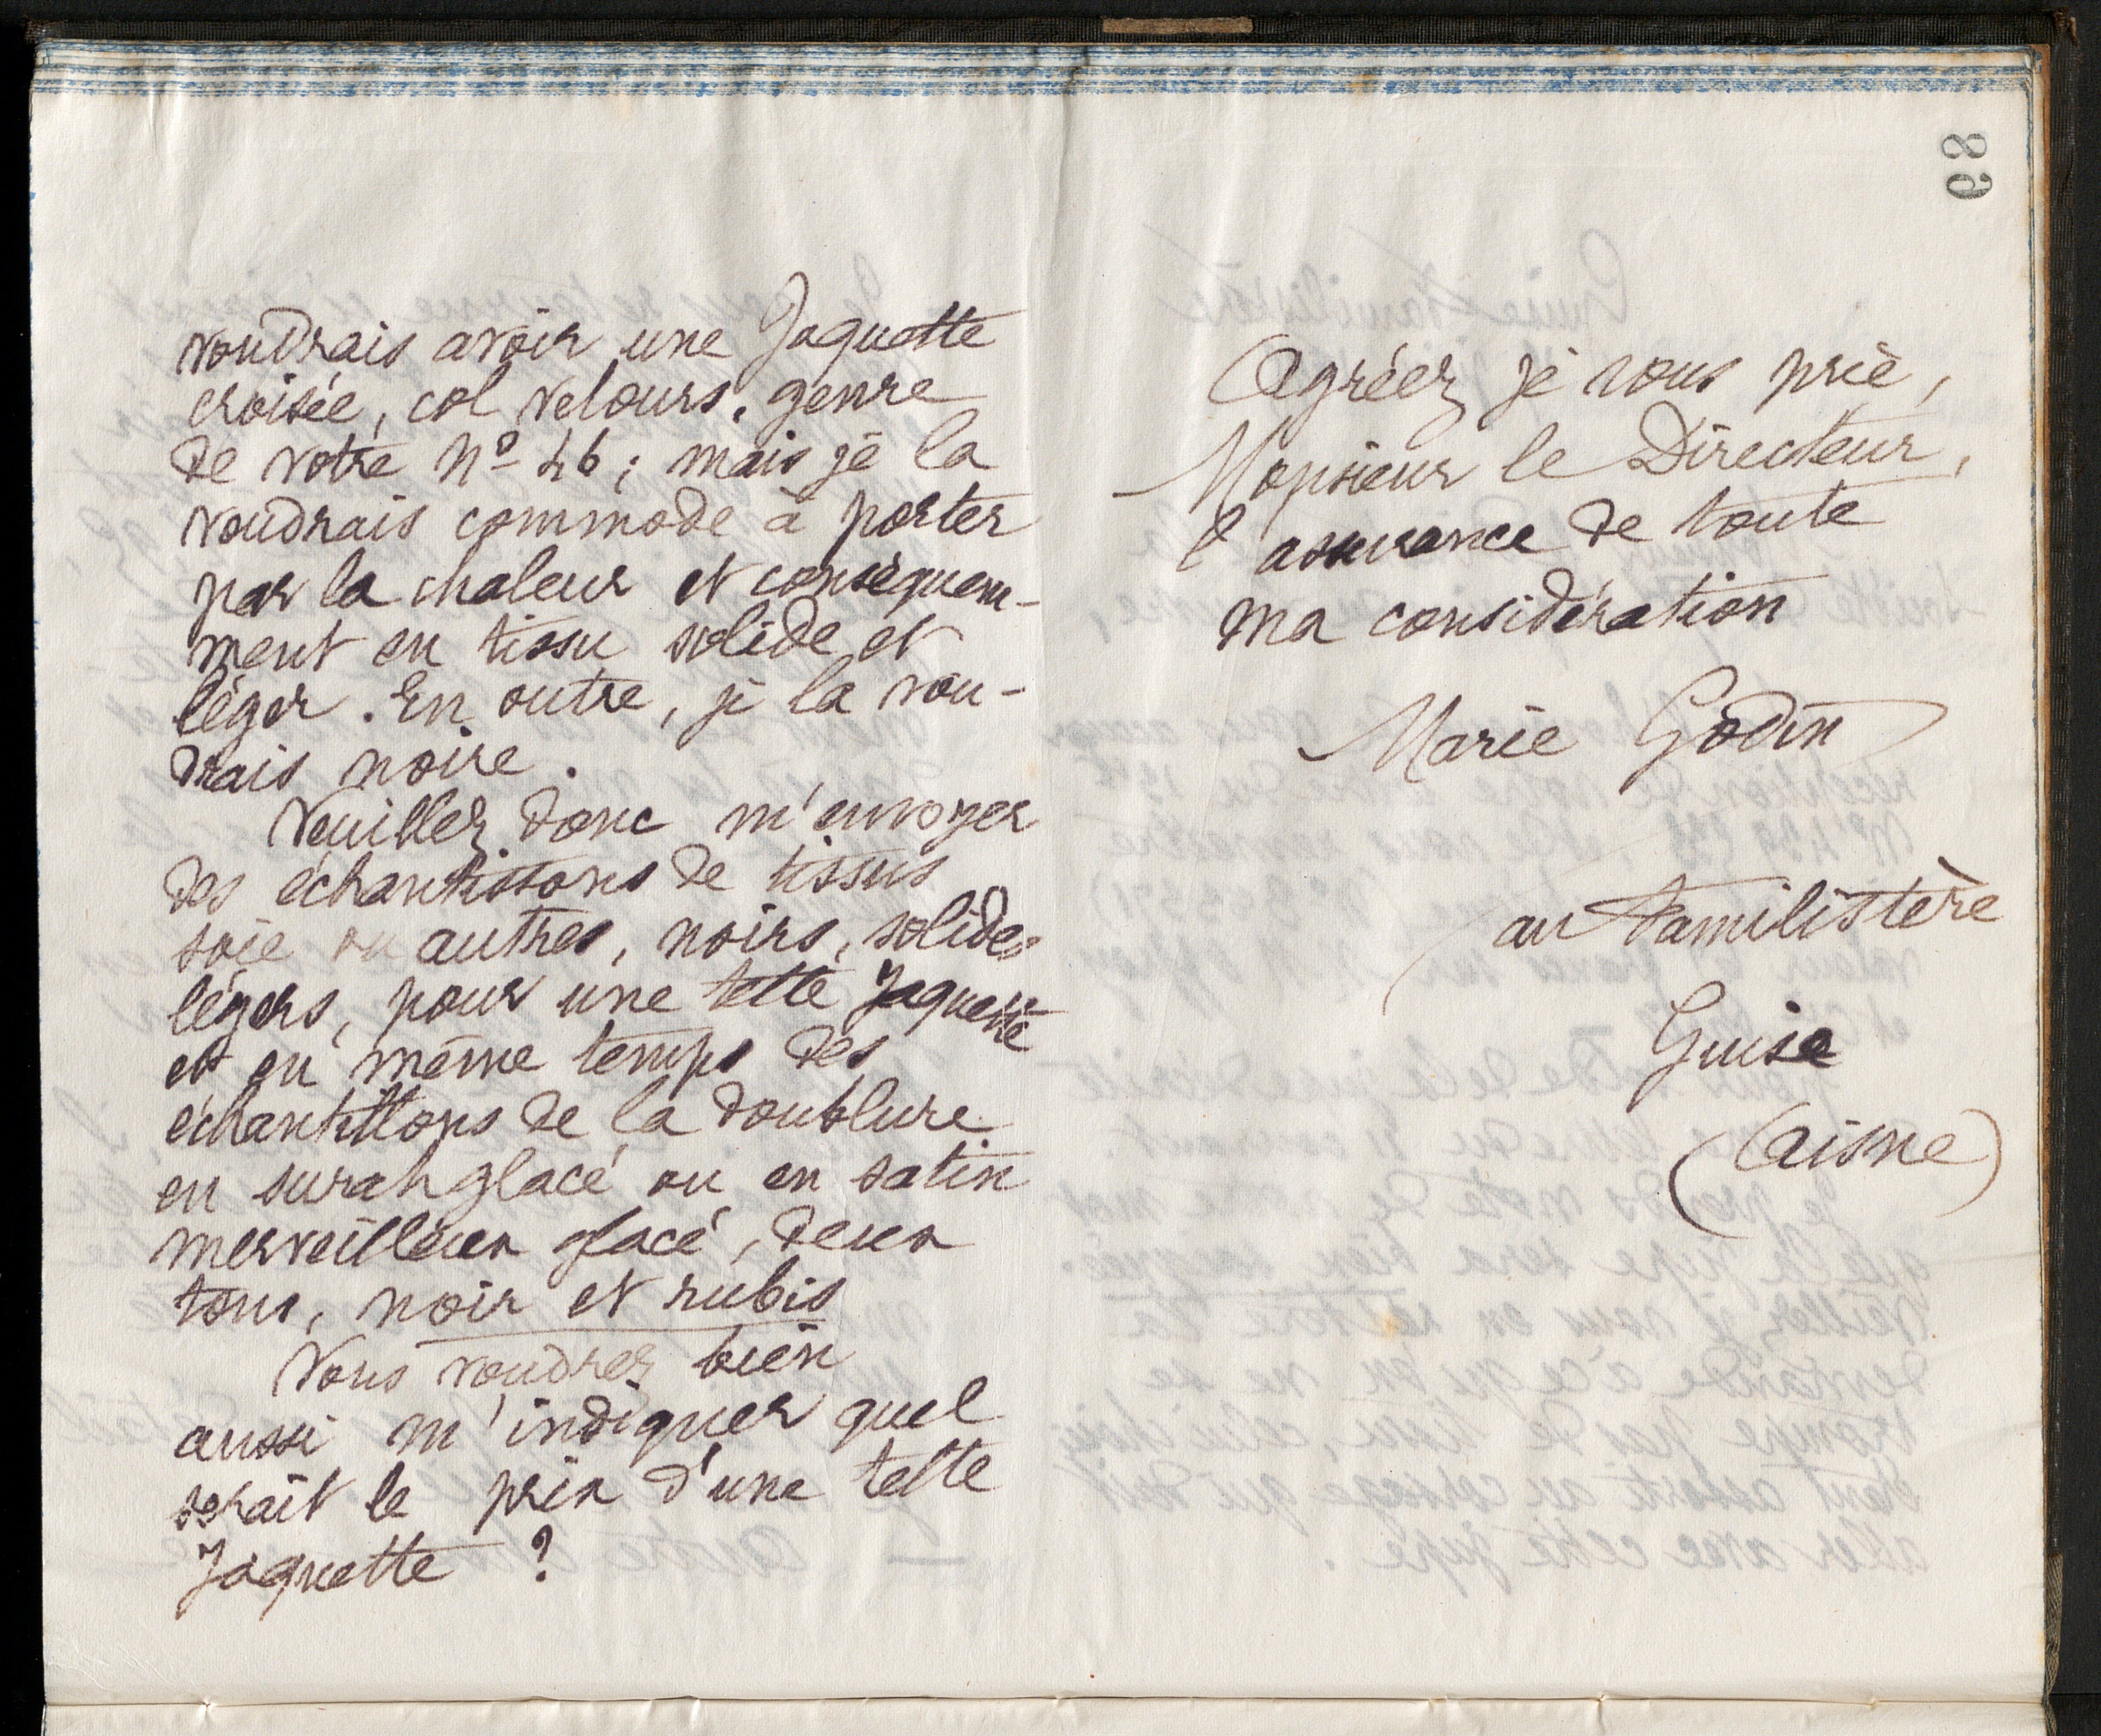 voudrais avoir une Jaquette
croisée, col velours, genre
de votre No 46; mais je la
voudrais commode à porter
par la chaleur et conséquem-
ment en tissu solide et
léger. En outre, je la vou-
drais noire.
Veuillez donc m'envoyer
des échantillons de tissus
soie ou autres, noirs, solides
légers, pour une telle Jaquette
et en même temps des
échantillons de la doublure
en surah glacé ou en satin
merveilleux glacé, deux
tons, noir et rubis
Vous voudrez bien
aussi m'indiquer quel
serait le prix d'une telle
Jaquette ?
89
Agréez, je vous prie,
Monsieur le Directeur,
l'assurance de toute
ma considération
Marie Godin
au Familistère
Guise
(Aisne)